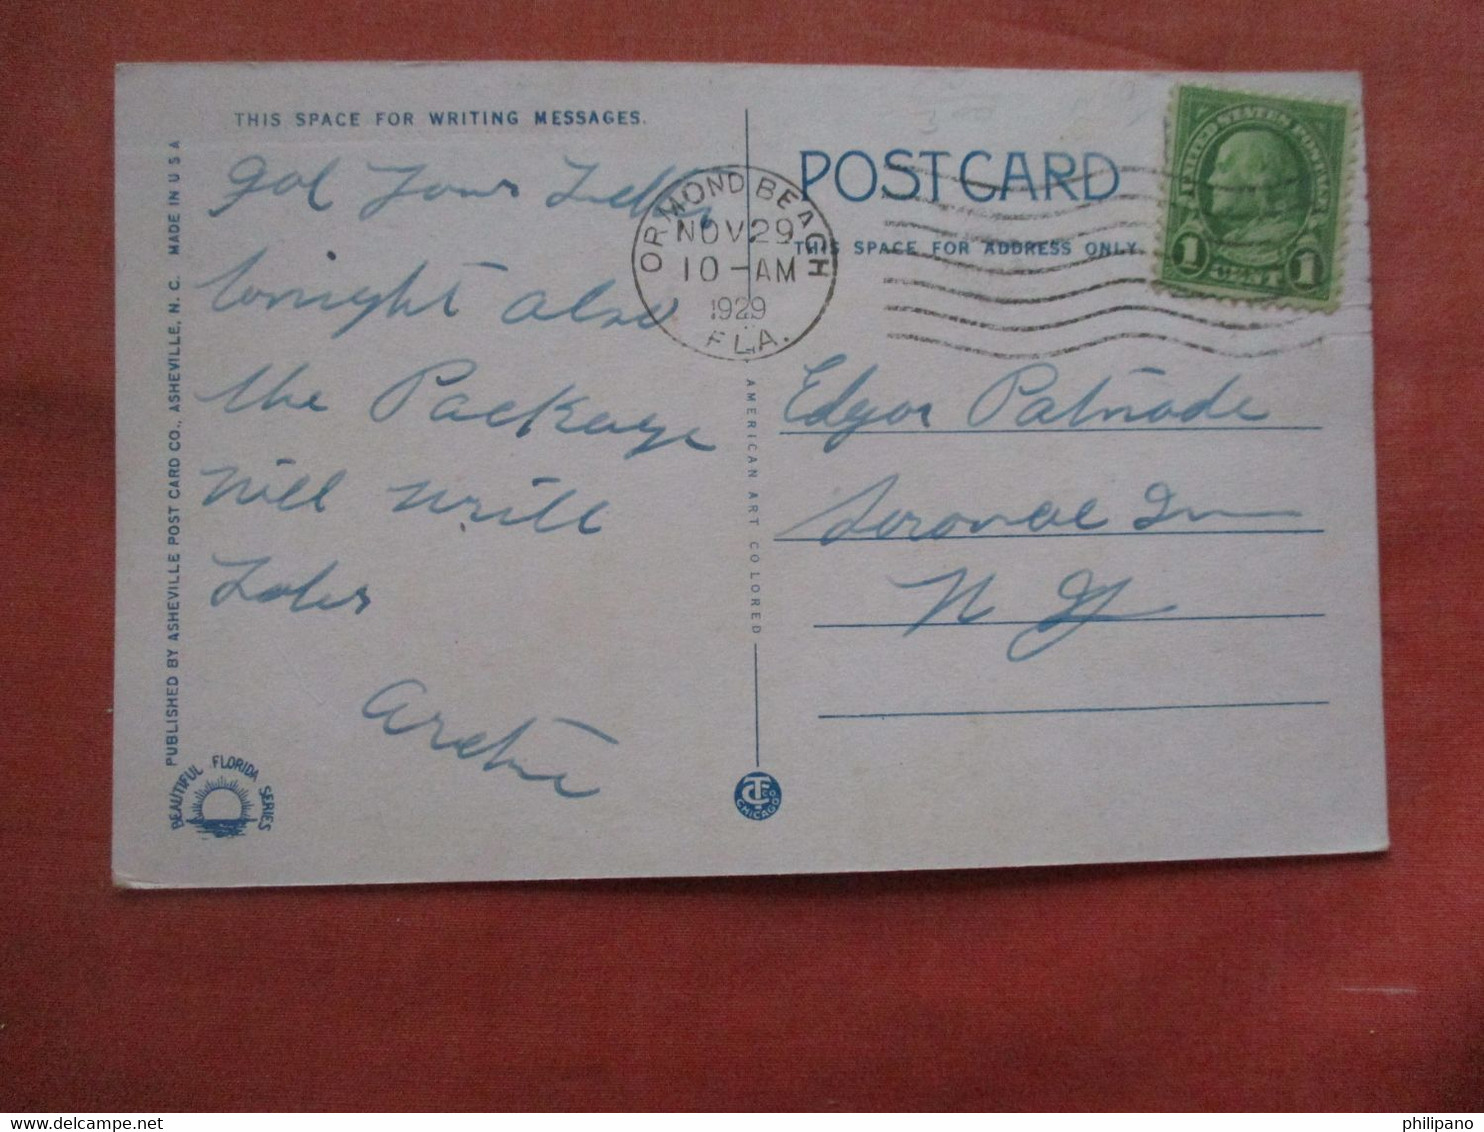 THIS SPACE FOR WRITING MESSAGES.
got your Letter
tonight also
the Package
will write
Later
Archie
PUBLISHED BY ASHEVILLE POST CARD CO., ASHEVILLE, N. C. MADE IN U S A
BEAUTIFUL FLORIDA SERIES
AMERICAN ART COLORED
CT CO
CHICAGO
ORMOND BEACH
NOV 29
10-AM
1929
FLA.
POST CARD
THIS SPACE FOR ADDRESS ONLY
UNITED STATES POSTAGE
1 CENT 1
Edgar Patnode
Inn
N Y
philipano
www.delcampe.net